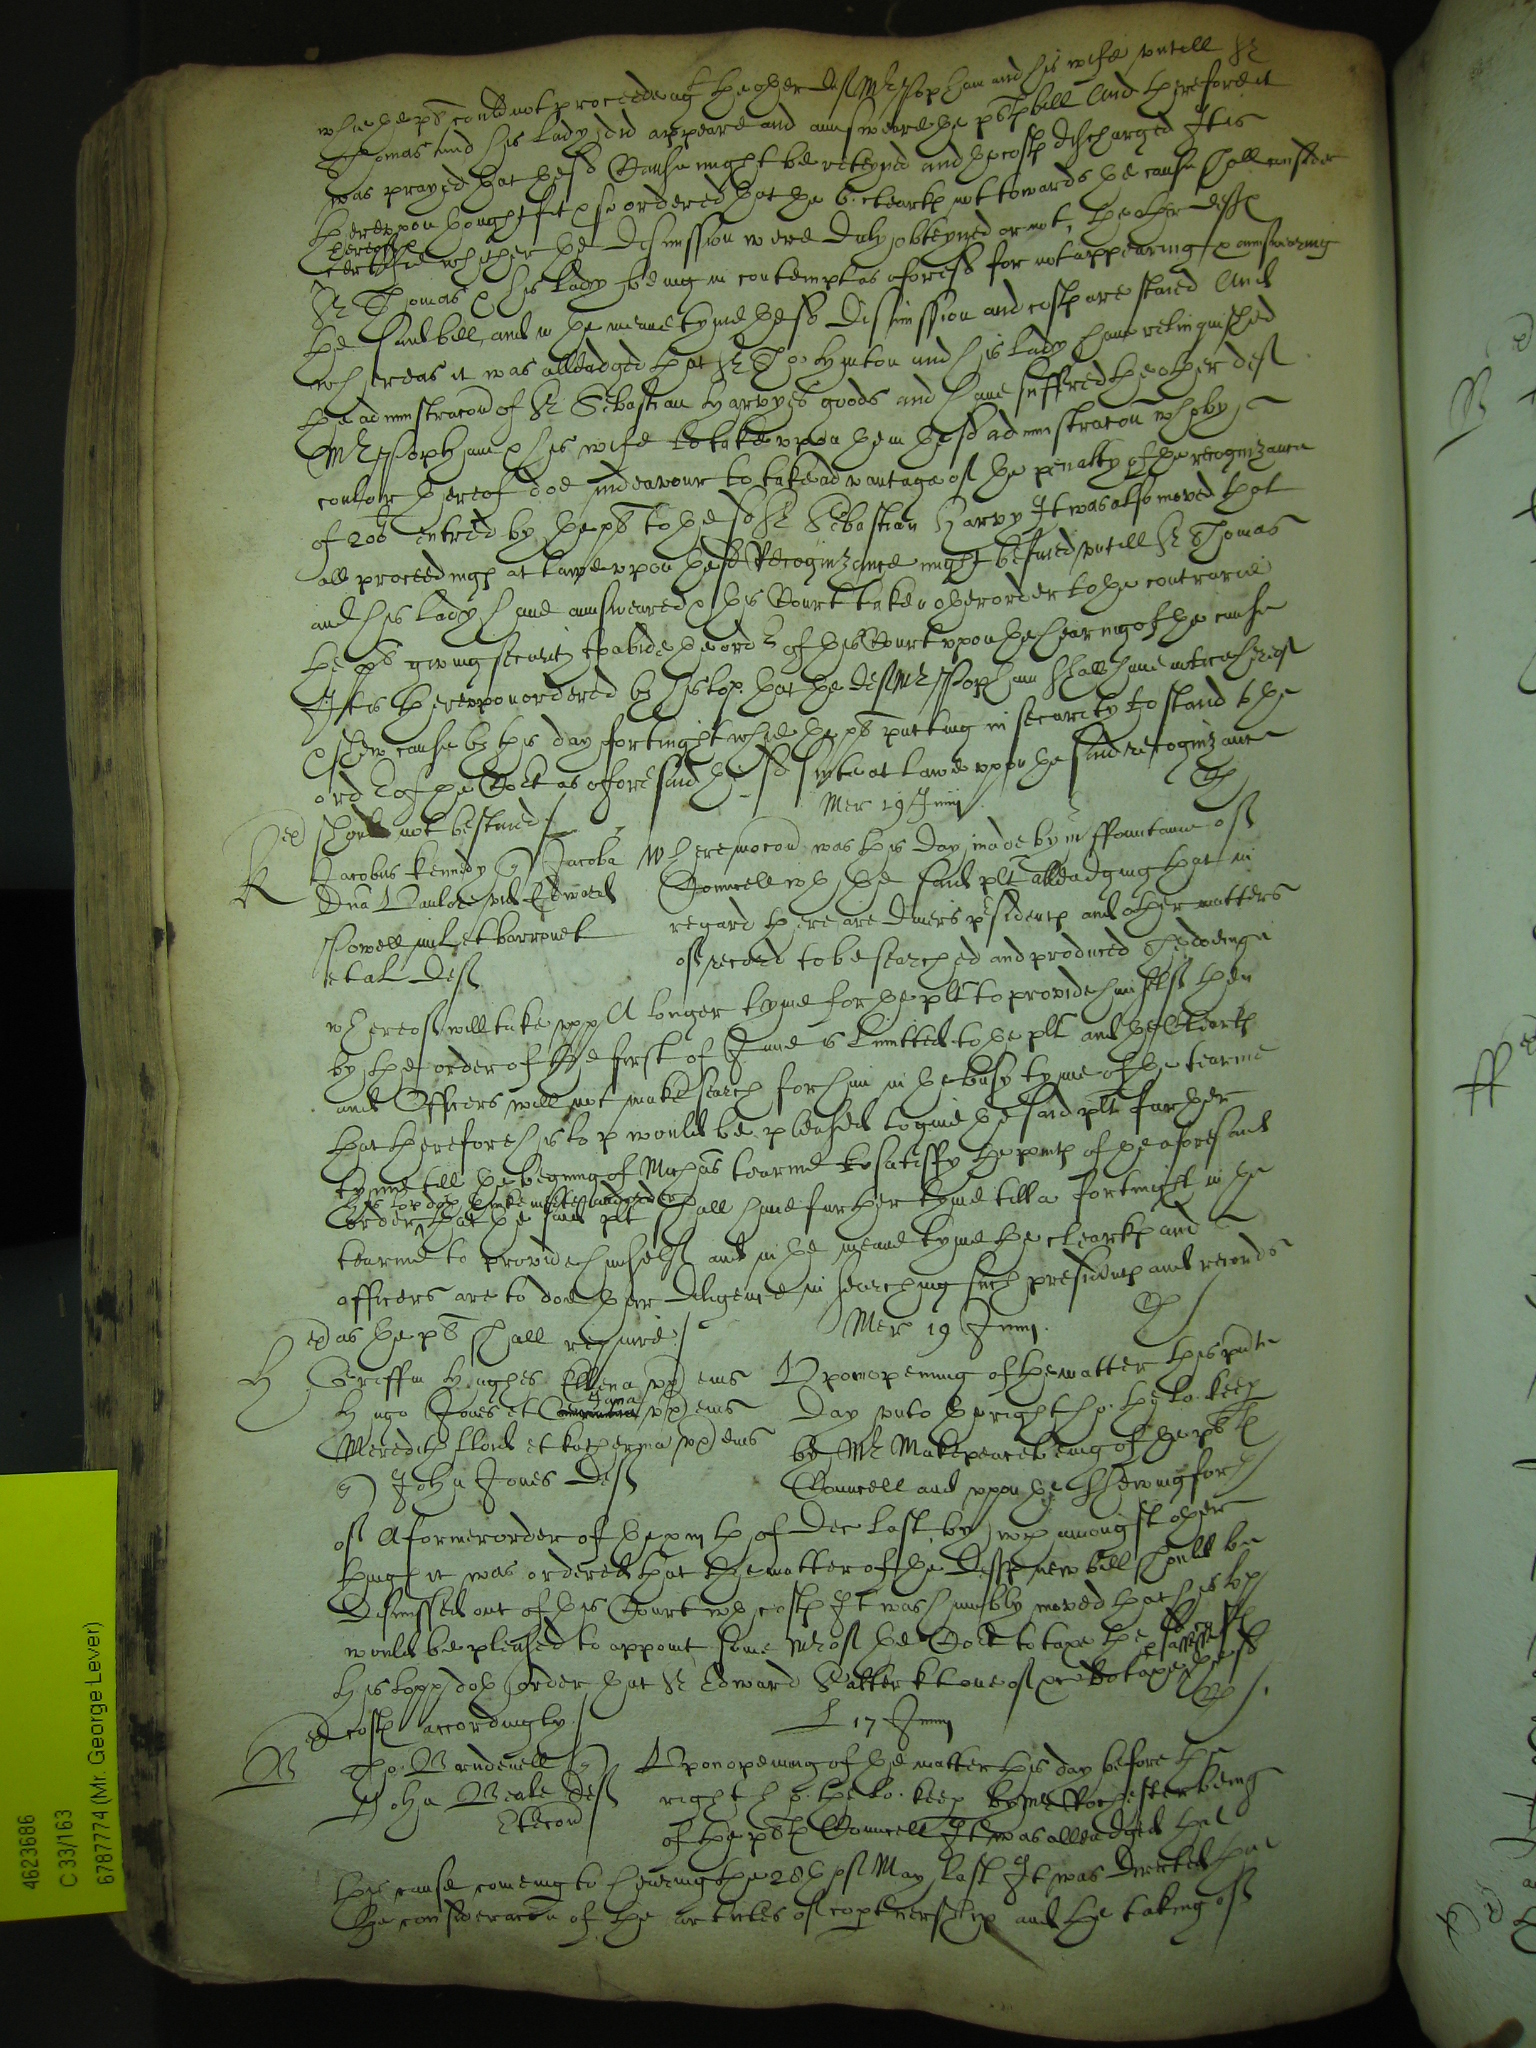 w^ch the pl^t could not proceede ag^t the other def^t M^r Popham and his wife untill S^r
Thomas and his lady did appeare and aunsweare the pl^ts bill And therefore it
was prayed that the s^d Cause might be reteyned and the costs discharged It is
thereupon thought fit & so ordered that the 6 clearks not towards the cause shall consider
thereof &
certifie whether the dismission were duly obteyned or not, the other deft^s
S^r Thomas & his lady being in contempt as aforesd for not appearing & aunswearing
the said bill, and in the meane tyme the sd dismission and costs are staied And
whereas it was alleadged that S^r Tho: Hynton and his lady have relinquished
the administracon of S^r Sebastian Harvyes goods and have suffred the other def^t
M^r Popham & his wife to take upon them the sd administracon who by
coulor thereof doe indeavour to take advantage of the penalty of the recognizance
of entred by the pl^t to the sd S^r Sebastian Harvy It was also moved that
all proceedings at lawe upon the sd Recognizance might be staied untill S^r Thomas
and his lady have aunsweared & this Court taken other order to the contrarie
the pl^t giving security to abide the ord^r of this Court upon the hearing of the cause
It is thereupon ordered by his lo^p that the def^t M^r Popham shall have notice hereof
& shew cause by this day fortnight why the pl^t putting in security to stand to the
ord^r of the Co^rt as aforesaid the sd suite at lawe upon the said recognizance
should not be staied
Mer 19 Junij
K
Jacobus Kennedy q^r Jacoba
Dna vid Edward
Powell mil et barronet
et al def^t
Whereas mocon was this day made by m^r Fountaine of
Councell w^th the said pl^t alleadging that in
regard there are divers p^rsidents and other matters
of record to be searched and produced the doeing
whereof will take upp A longer tyme for the pl^t to provide himselfe then
by the order of the first of June is limitted to the pl^t and the Clearks
and Officers will not make search for him in the busy tyme of the tearme
that therefore his lo^p would be pleased to give the said pl^t further
tyme till the begining of Mich^as tearme to satisfy the points of the aforesaid
order his lo^p doth order
that the said pl^t shall have further tyme till a fortnight in the
tearme to provide himself and in the meane tyme the clearks and
officers are to doe their diligence in searching such presidents and records
as the pl^t shall require
Mer 19 Junij
H
Griffin Hughes Ellena ux eius
Hugo Jones et Jana ux eius
Meredith Lloid et Katherina ux eius
q^r John Jones def^t
Upon opening of the matter this p^rnte
day unto the right ho: the lo: keep
by M^r Makepeace being of the pl^ts
Councell and upon the shewing forth
of A former order of the of Dec last by w^ch amongst other
things it was ordered that the matter of the deft^s new bill should be
dismissed out of this Court w^th costs It was humbly moved that his lo^pp
would be pleased to appoint some M^r of the Co^rt to taxe the
his lo^pp doth order that S^r Edward Salter K^t one of &c doe taxe & assesse the sd
costs accordingly
L 17 Junij
B
Tho: Brudenell q^r
John Beale def^t
Et econ^a
Upon opening of the matter this day before the
right ho: the lo: keep by M^r Rochester being
of the pl^ts Councell It was alleadged that
this cause comeing to hearing the 28th of May last It was directed that
the consideracon of the articles of copartnershipp and the taking of
4623686
C 33/163
6787774 (Mr. George Lever)